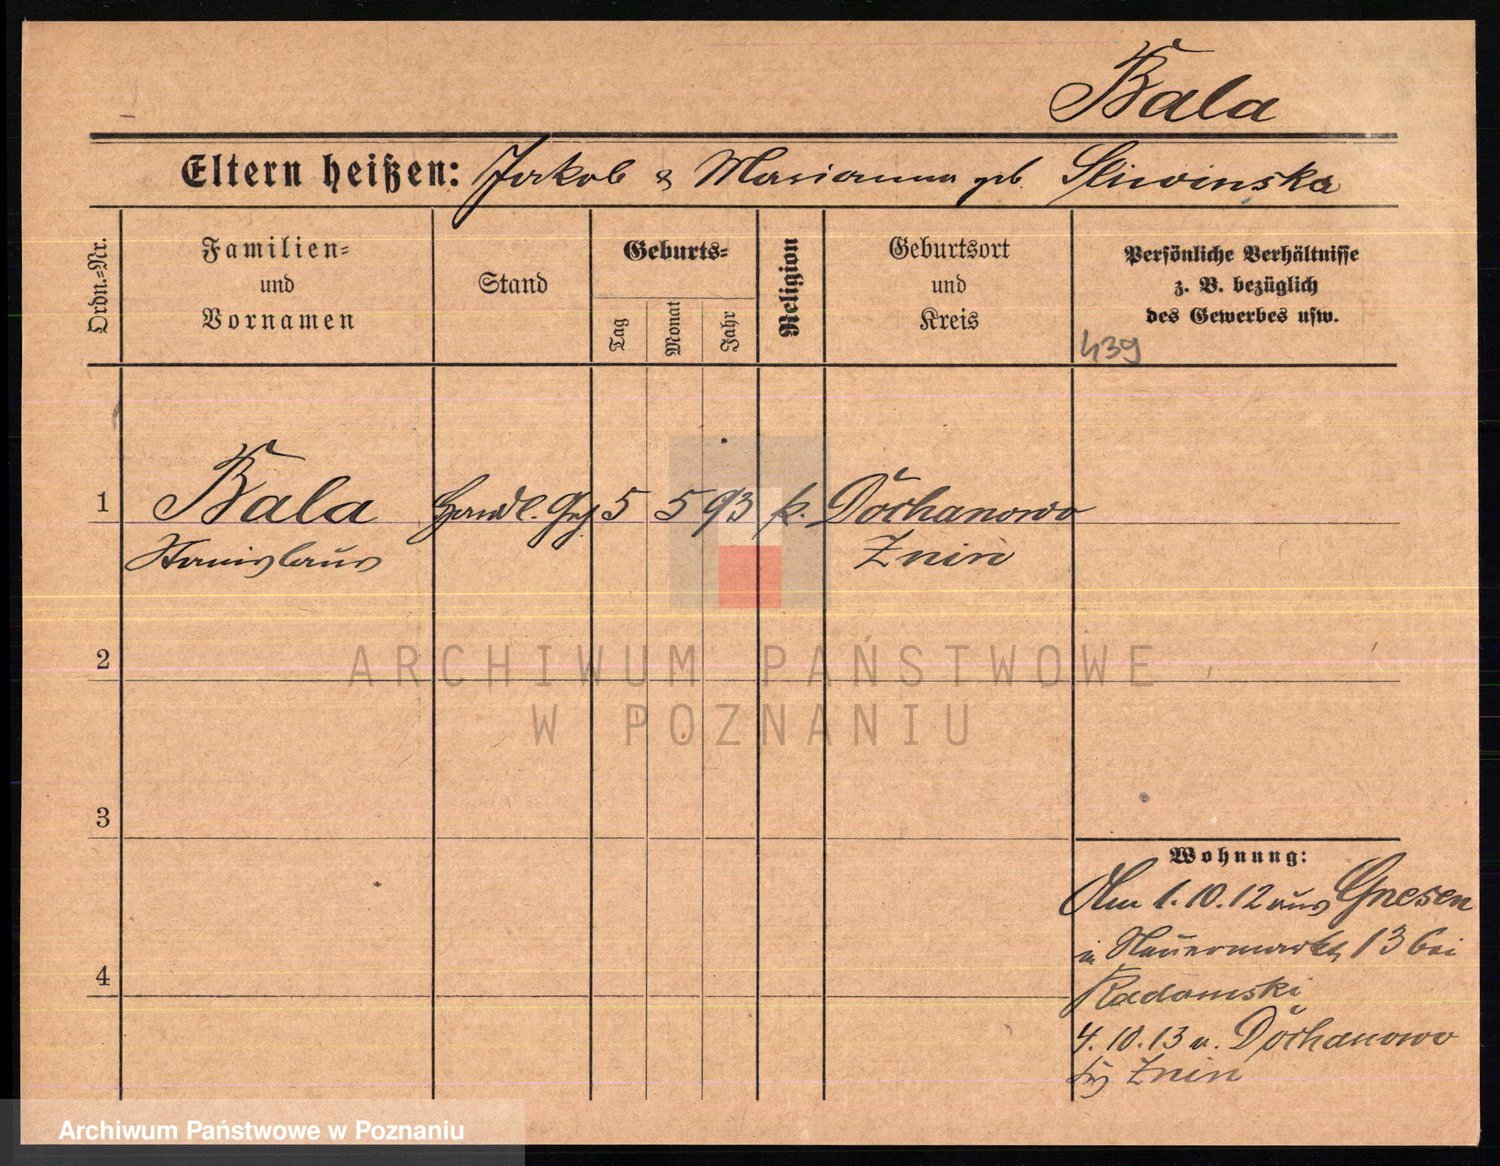 Bala
Eltern heißen: Jakob & Marianna geb. Sliwinska
Ordn.-Nr.
Familien-
und
Vornamen
Stand
Geburts-
Tag
Monat
Jahr
Religion
Geburtsort
und
Kreis
Persönliche Verhältnisse
z. B. bezüglich
des Gewerbes usw.
439
1 Bala Handl. Geh. 5 5 93 k. Dochanowo
Stanislaus Znin
2
ARCHIWUM PAŃSTWOWE
W POZNANIU
3
Wohnung:
Am 1.10.12 aus Gnesen
in 13 bei
Radomski
4
4.10.13 n. Dochanowo
Znin
Archiwum Państwowe w Poznaniu